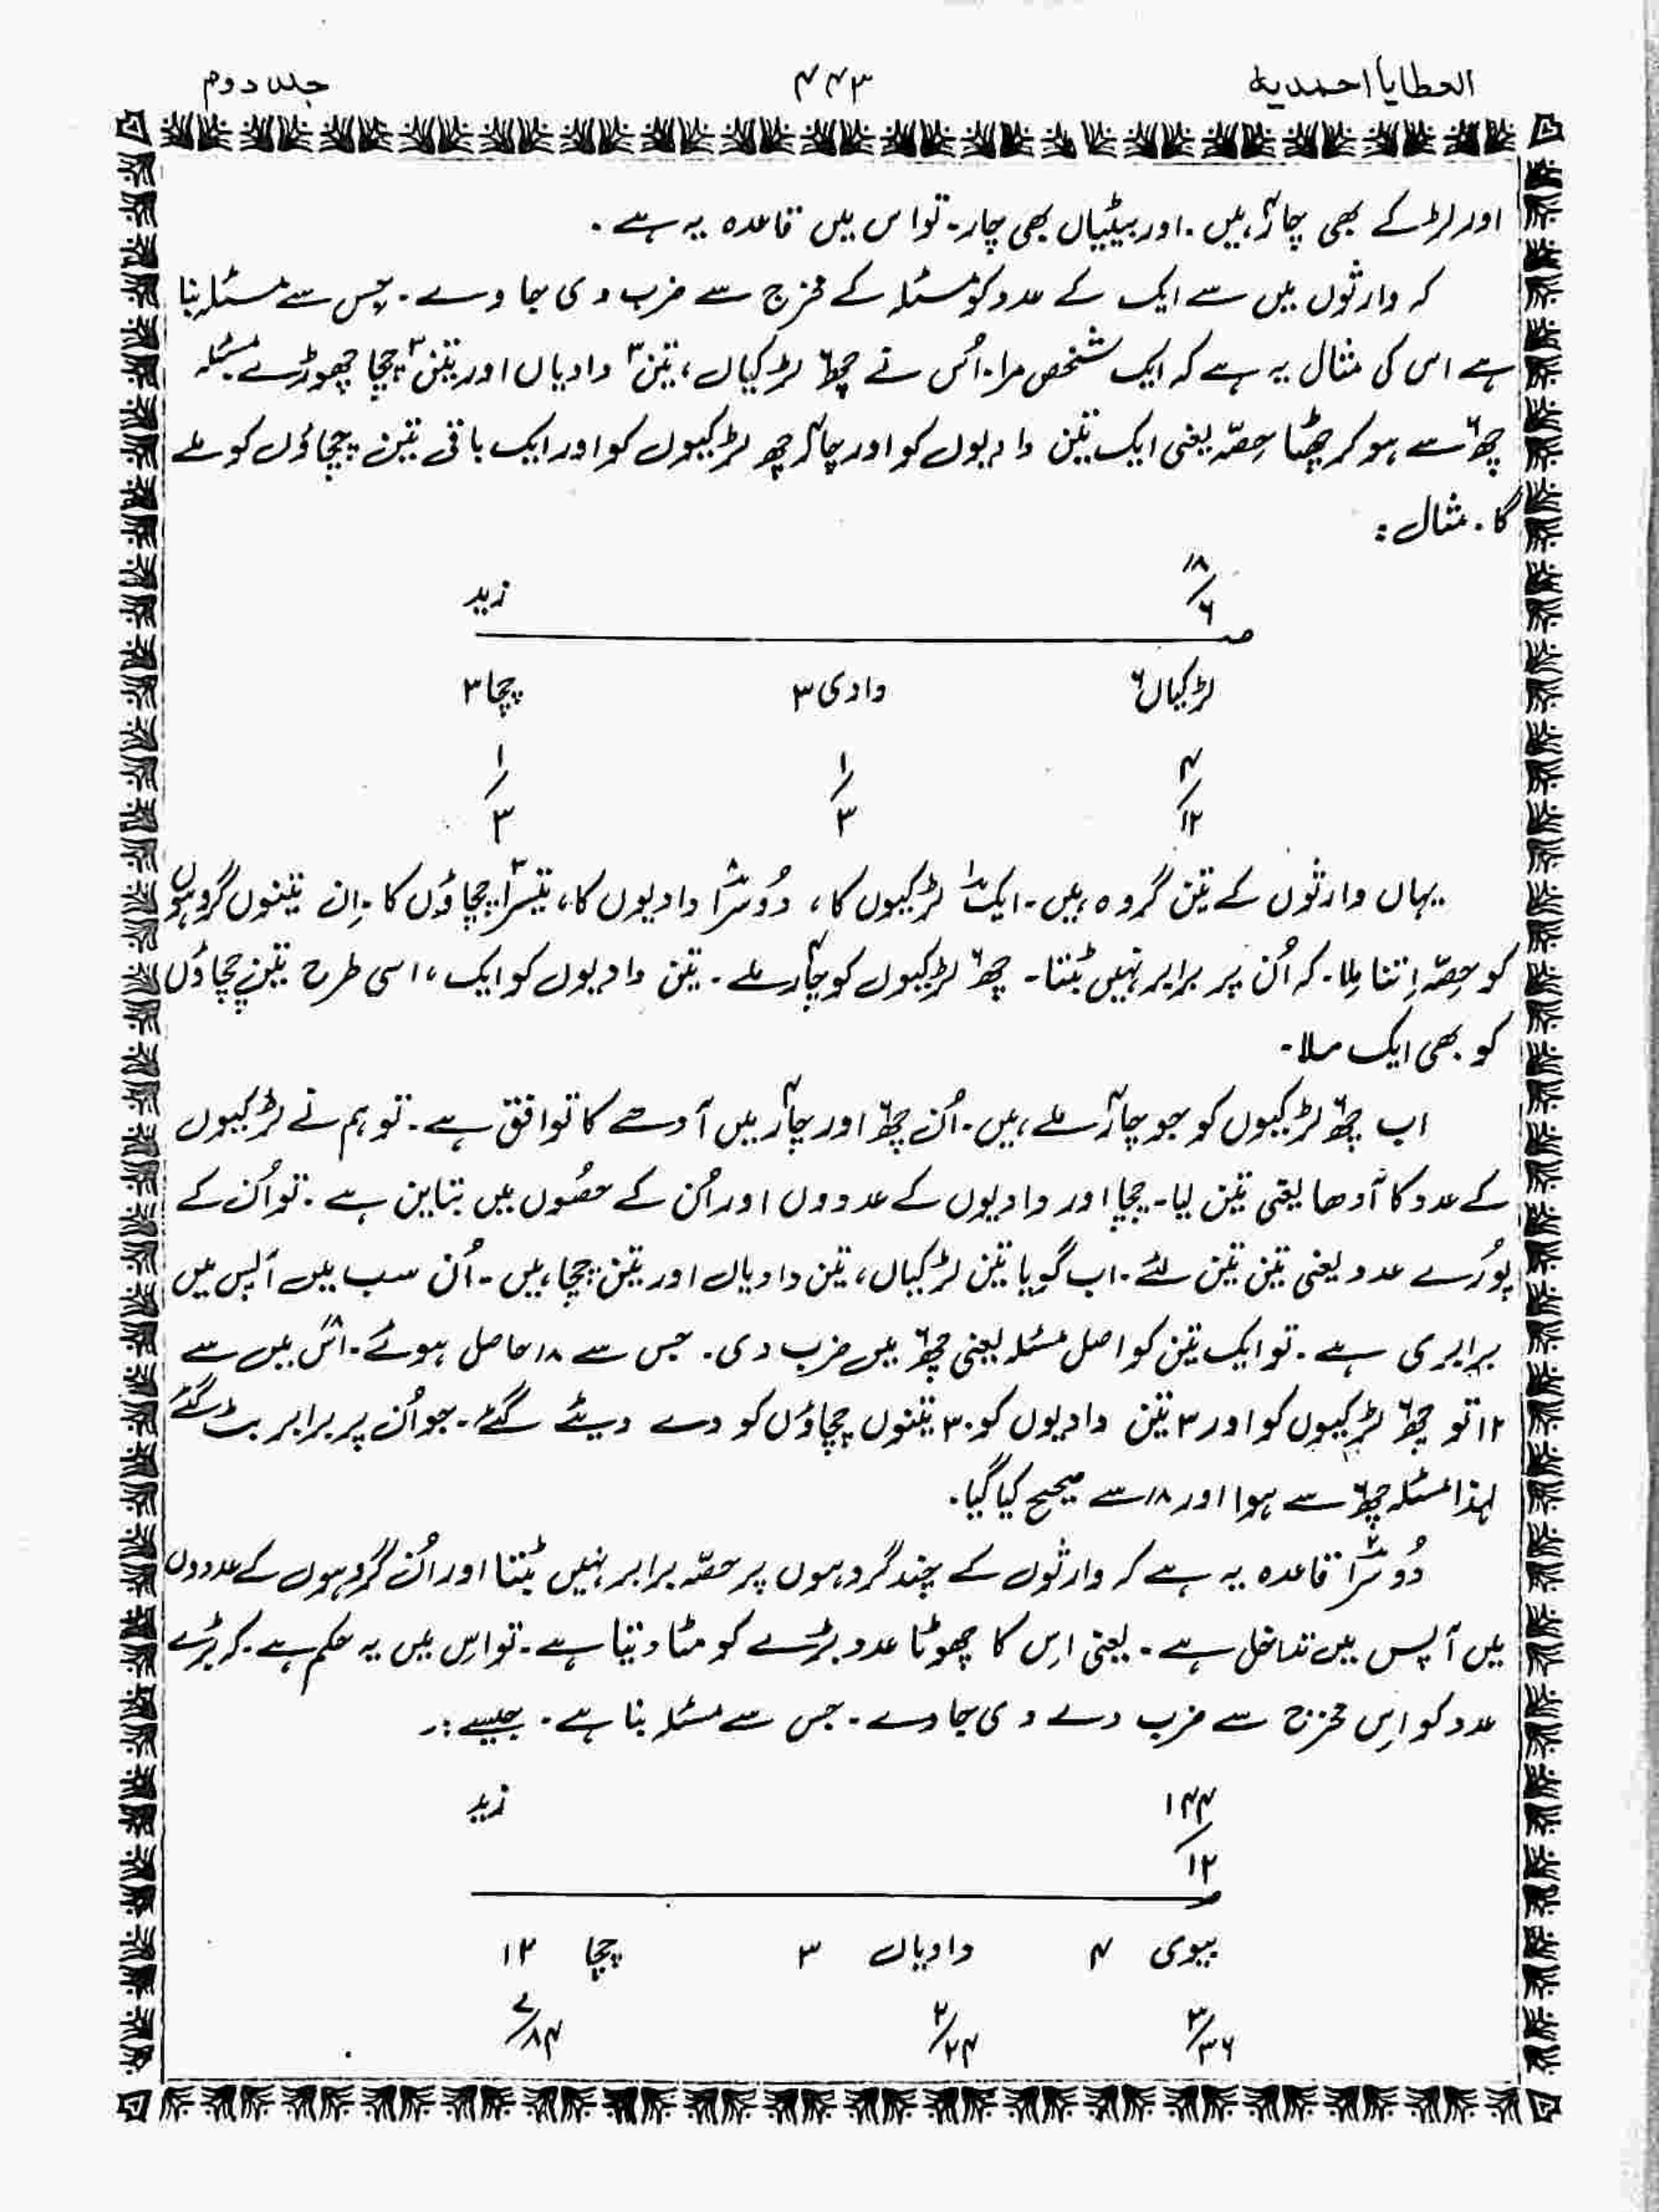 العطایا احمدیہ
۴۴۳
جلد دوم
اور لڑکے بھی چار ہیں۔ اور بیٹیاں بھی چار۔ تو اس میں قاعدہ یہ ہے۔
کہ وارثوں میں سے ایک کے عدد کو مسئلہ کے مخرج سے ضرب دی جاوے۔ جس سے مسئلہ بنا
ہے اس کی مثال یہ ہے کہ ایک شخص مرا۔ اُس نے چھ۶ لڑکیاں، تین۳ دادیاں اور تین۳ چچا چھوڑے مسئلہ
چھ۶ سے ہو کر چھٹا حِصّہ یعنی ایک تین دادیوں کو اور چار۴ چھ لڑکیوں کو اور ایک باقی تین چچاؤں کو ملے
گا۔ مثال :
۱۸/۶
زید
لڑکیاں ۶
دادی ۳
چچا ۳
۴/۱۲
۱/۳
۱/۳
یہاں وارثوں کے تین گروہ ہیں۔ ایک۱ لڑکیوں کا، دُوسرا۲ دادیوں کا، تیسرا۳ چچاؤں کا۔ اِن تینوں گروہوں
کو حِصّہ اِتنا مِلا۔ کہ اُن پر برابر نہیں بٹتا۔ چھ۶ لڑکیوں کو چار۴ ملے۔ تین دادیوں کو ایک، اسی طرح تین چچاؤں
کو بھی ایک ملا۔
اب چھ۶ لڑکیوں کو جو چار۴ ملے ہیں۔ اُن چھ۶ اور چار۴ میں آدھے کا توافق ہے۔ تو ہم نے لڑکیوں
کے عدد کا آدھا یعنی تین لیا۔ چچا اور دادیوں کے عددوں اور اُن کے حصُوں میں تباین ہے۔ تو اُن کے
پوُرے عدد یعنی تین تین لئے۔ اب گویا تین لڑکیاں، تین دادیاں اور تین چچا ہیں۔ اُن سب میں آپس میں
برابری ہے۔ تو ایک تین کو اصل مسئلہ یعنی چھ۶ میں ضرب دی۔ جس سے ۱۸ حاصل ہوئے۔ اس۱۸ میں سے
۱۲ تو چھ۶ لڑکیوں کو اور ۳ تین دادیوں کو۔ ۳ تینوں چچاؤں کو دے دیئے گئے۔ جو اُن پر برابر بٹ گئے
لہذا مسئلہ چھ۶ سے ہوا اور ۱۸ سے صحیح کیا گیا۔
دُوسرا۲ قاعدہ یہ ہے کہ وارثوں کے چند گروہوں پر حصّہ برابر نہیں بٹتا اور اُن گروہوں کے عددوں
میں آپس میں تداخل ہے۔ یعنی اِس کا چھوٹا عدد بڑے کو مٹا دیتا ہے۔ تو اس میں یہ حکم ہے۔ کہ بڑے
عدد کو اِس مخرج سے ضرب دے دی جاوے۔ جس سے مسئلہ بنا ہے۔ جیسے :۔
۱۴۴/۱۲
زید
بیوی ۴
دادیاں ۳
چچا ۱۲
۳/۳۶
۲/۲۴
۷/۸۴